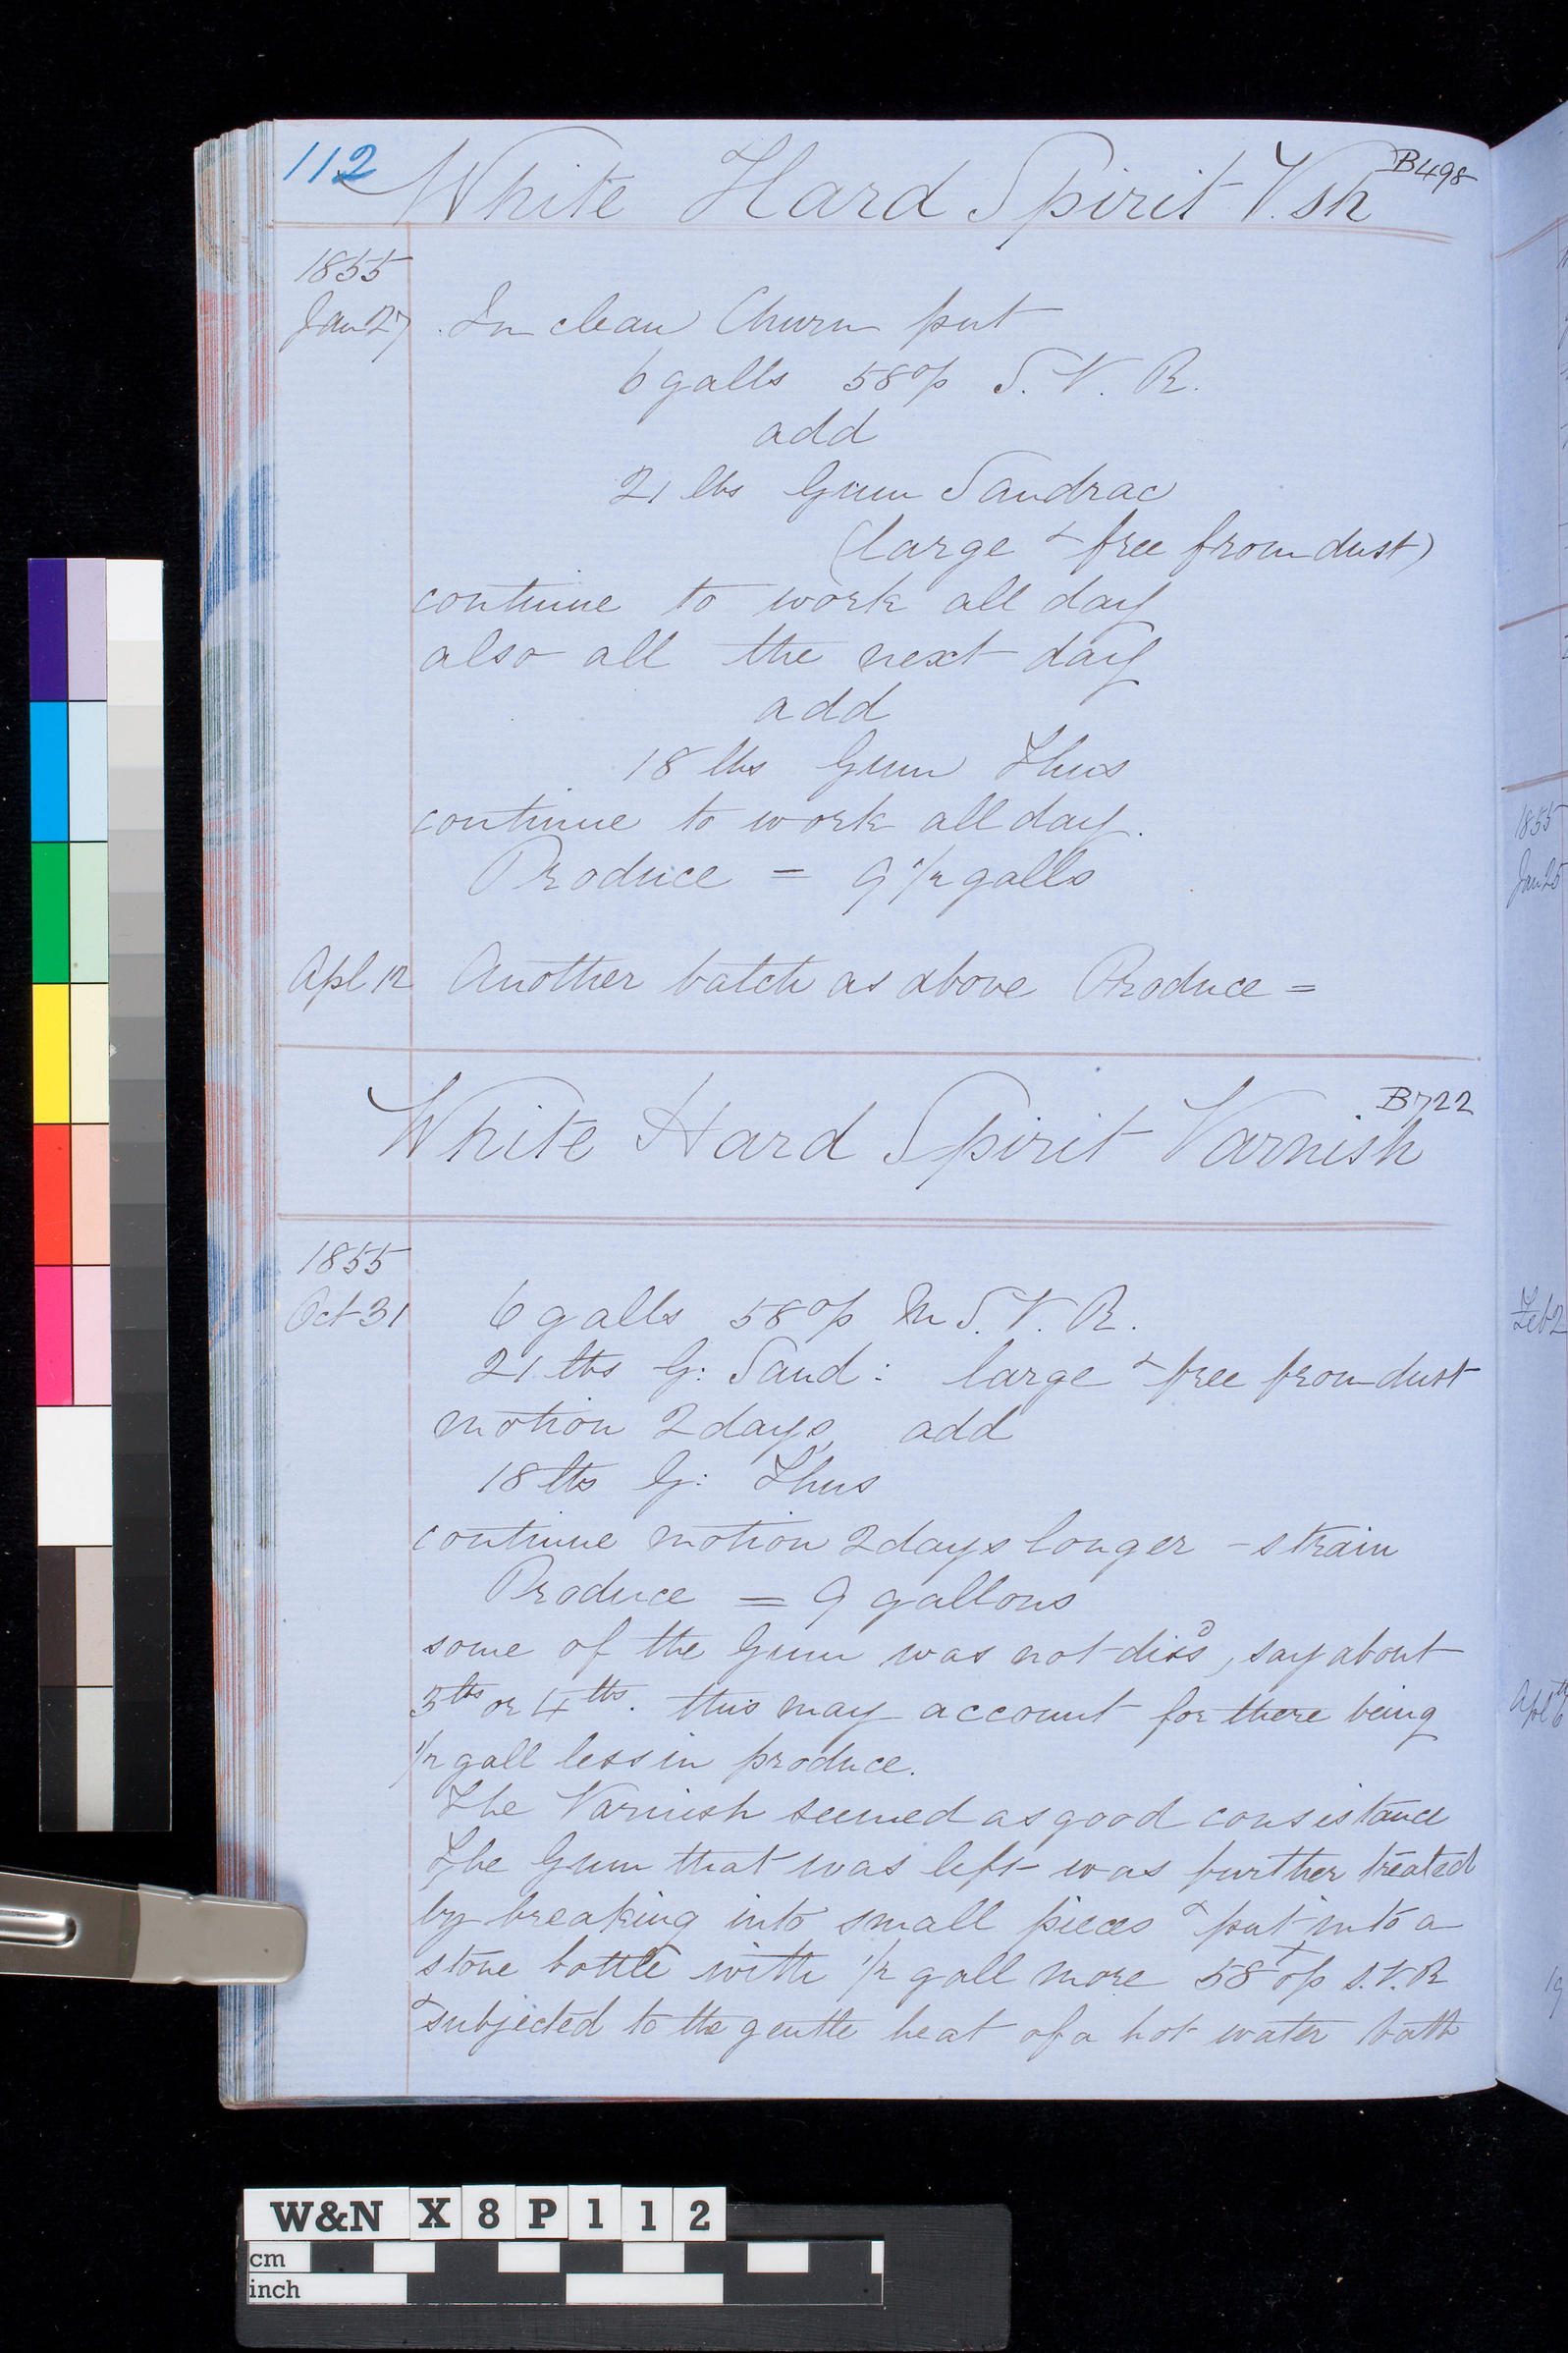 112 White Hard Spirit V.sh B498
1855
Jan 27 In clean Churn put
6 galls 58 o/p S. V. R.
add
21 lbs Gum Sandrac
(large & free from dust)
continue to work all day
also all the next day
add
18 lbs Gum Thus
continue to work all day.
Produce = 9 1/2 galls
Apl 12 Another batch as above Produce =
White Hard Spirit Varnish B722
1855
Oct 31 6 galls 58 o/p M S. V. R.
21 lbs G: Sand: large & free from dust
motion 2 days, add
18 lbs G: Thus
continue motion 2 days longer - strain
Produce = 9 gallons
some of the Gum was not diss'd, say about
3 lbs or 4 lbs. this may account for there being
1/2 gall less in produce.
The Varnish seemed as good consistance
The Gum that was left was further treated
by breaking into small pieces & put into a
stone bottle with 1/2 gall more 58 o/p S.V.R
& subjected to the gentle heat of a hot water bath
1855
Jan 25
Feb 2
Apl 6th
W&N X8P112
cm
inch